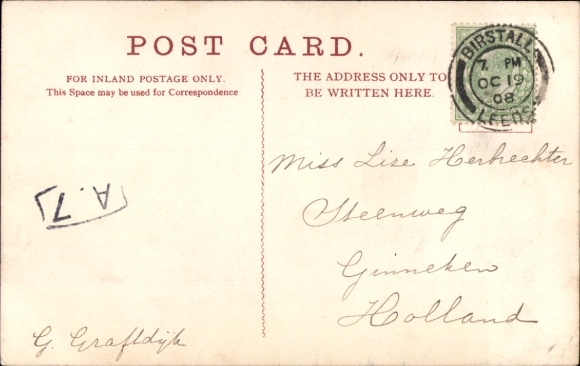 POST CARD.
FOR INLAND POSTAGE ONLY.
This Space may be used for Correspondence
THE ADDRESS ONLY TO
BE WRITTEN HERE.
BIRSTALL
7. PM
OC 19
08
LEEDS
Miss Lize Herbrechter
Steenweg
Ginneken
Holland
A. 7
G. Grafldijk